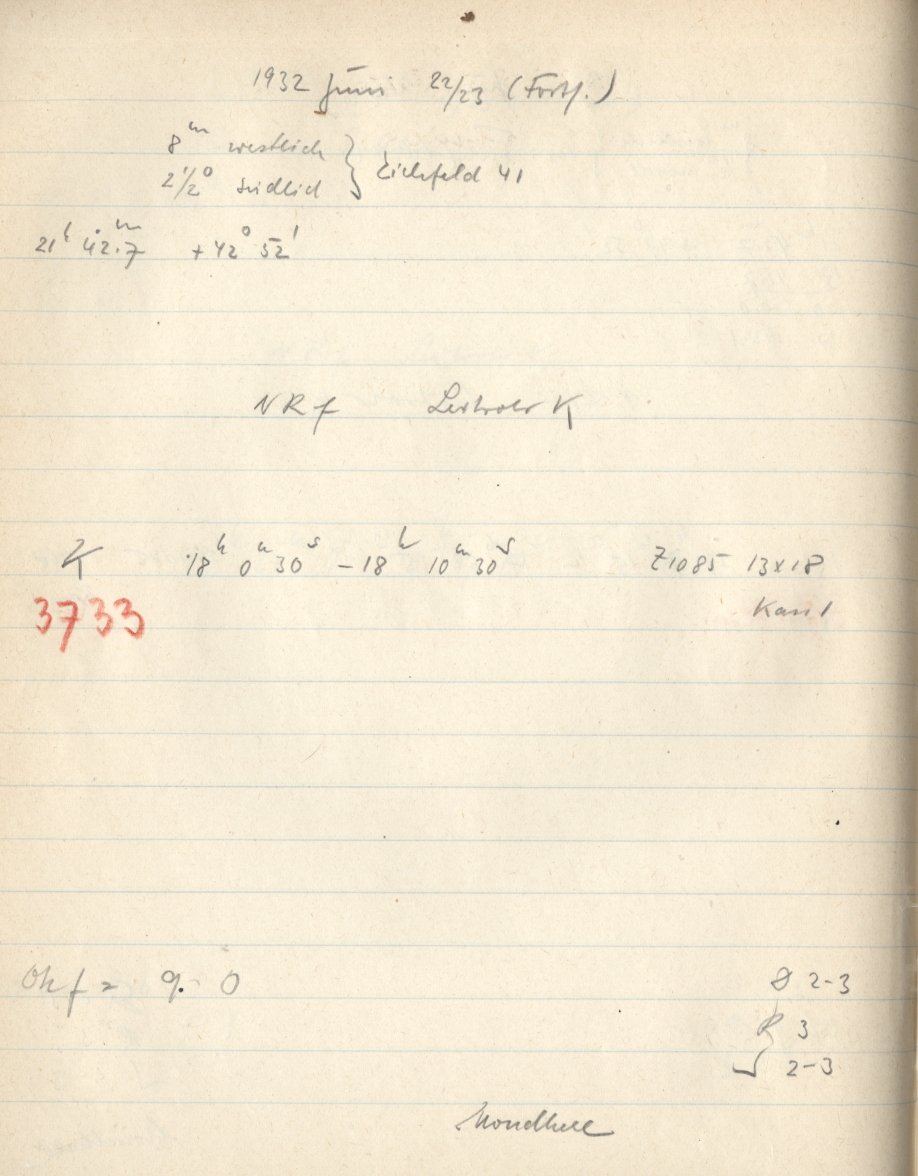 1932 Juni 22/23 (Forts.)
8ᵐ westlich
2 1/2° südlich } Eichfeld 41
21ʰ 42.7ᵐ +42° 52'
NRf Leitrohr K
K 18ʰ 0ᵐ 30ˢ – 18ʰ 10ᵐ 30ˢ Z1085 13x18
3733 Kass 1
Okf = 9. 0 2-3
R 3
2-3
Mondhell